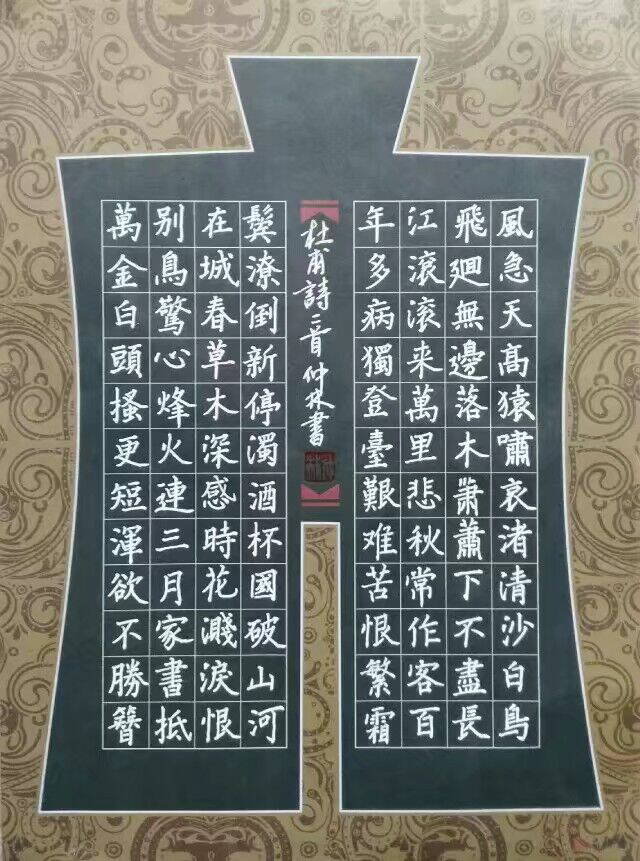 風急天高猿嘯哀渚清沙白鳥
飛廻無邊落木萧蕭下不盡長
江滾滾来萬里悲秋常作客百
年多病獨登臺艱难苦恨繁霜
鬓潦倒新停濁酒杯國破山河
在城春草木深感時花濺淚恨
别鳥驚心烽火連三月家書抵
萬金白頭搔更短渾欲不勝簪
杜甫詩二首仲林書